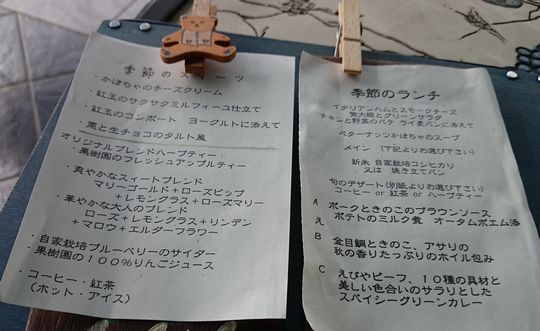 季節のスイーツ
・かぼちゃのチーズクリーム
・紅玉のサクサクミルフィーユ仕立て
・紅玉のコンポート ヨーグルトに添えて
・栗と生チョコのタルト風
オリジナルブレンドハーブティー
果樹園のフレッシュアップルティー
・爽やかなスィートブレンド
マリーゴールド+ローズヒップ
+レモングラス+ローズマリー
・華やかな大人のブレンド
ローズ+レモングラス+リンデン
+マロウ+エルダーフラワー
・自家栽培ブルーベリーのサイダー
果樹園の100%りんごジュース
・コーヒー・紅茶
(ホット・アイス)
季節のランチ
イタリアンハムとスモークチーズ
紫大根とグリーンサラダ
チキンと野菜のパテ ライ麦パンに添えて
バターナッツかぼちゃのスープ
メイン (下記よりお選び下さい)
新米 自家栽培コシヒカリ
又は 焼き立てパン
旬のデザート(別紙よりお選び下さい)
コーヒー or 紅茶 or ハーブティー
A ポークときのこのブラウンソース
え ポテトのミルク煮 オータムポエム添
B 金目鯛ときのこ、アサリの
秋の香りたっぷりのホイル包み
C えびやビーフ、10種の具材と
美しい色合いのサラリとした
スパイシーグリーンカレー